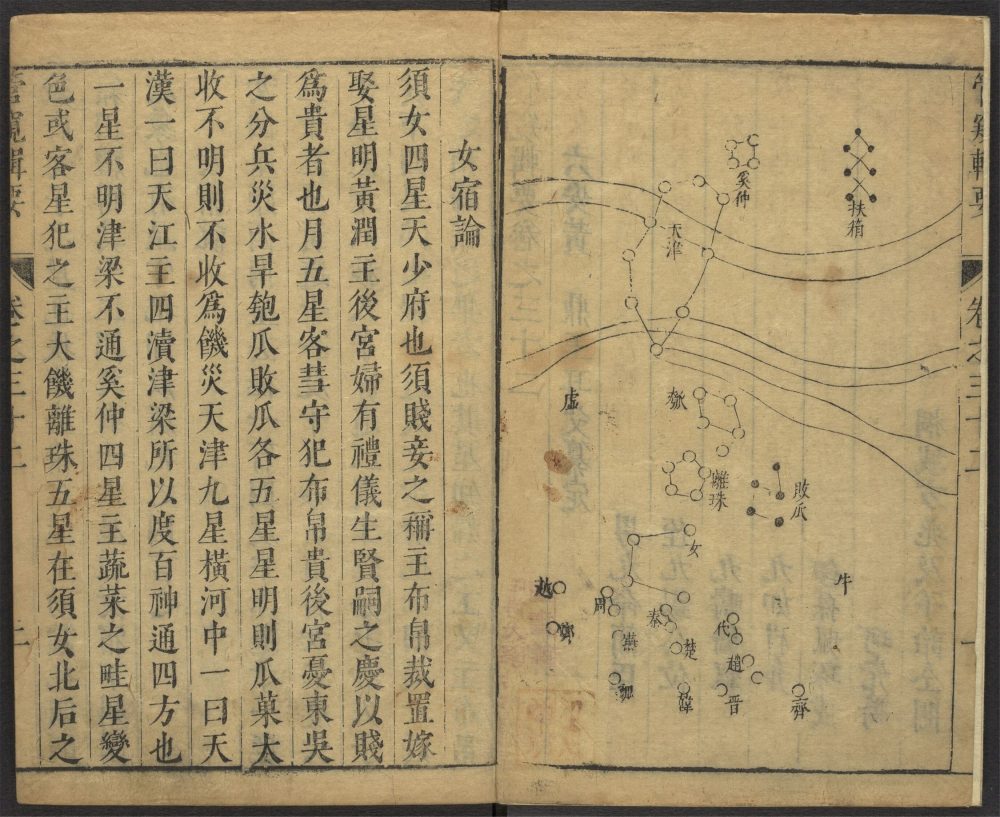 管窺輯要
卷之三十二
一
扶箱
奚仲
天津
瓠
虛
離珠
敗瓜
女
牛
越
鄭
周
秦
代
燕
楚
趙
晉
齊
女宿論
須女四星天少府也須賤妾之稱主布帛裁置嫁
娶星明黃潤主後宮婦有禮儀生賢嗣之慶以賤
爲貴者也月五星客彗守犯布帛貴後宮憂東吳
之分兵災水旱匏瓜敗瓜各五星星明則瓜菓太
收不明則不收爲饑災天津九星橫河中一曰天
漢一曰天江主四瀆津梁所以度百神通四方也
一星不明津梁不通奚仲四星主蔬菜之畦星變
色或客星犯之主大饑離珠五星在須女北后之
管窺輯要
卷之三十二
二